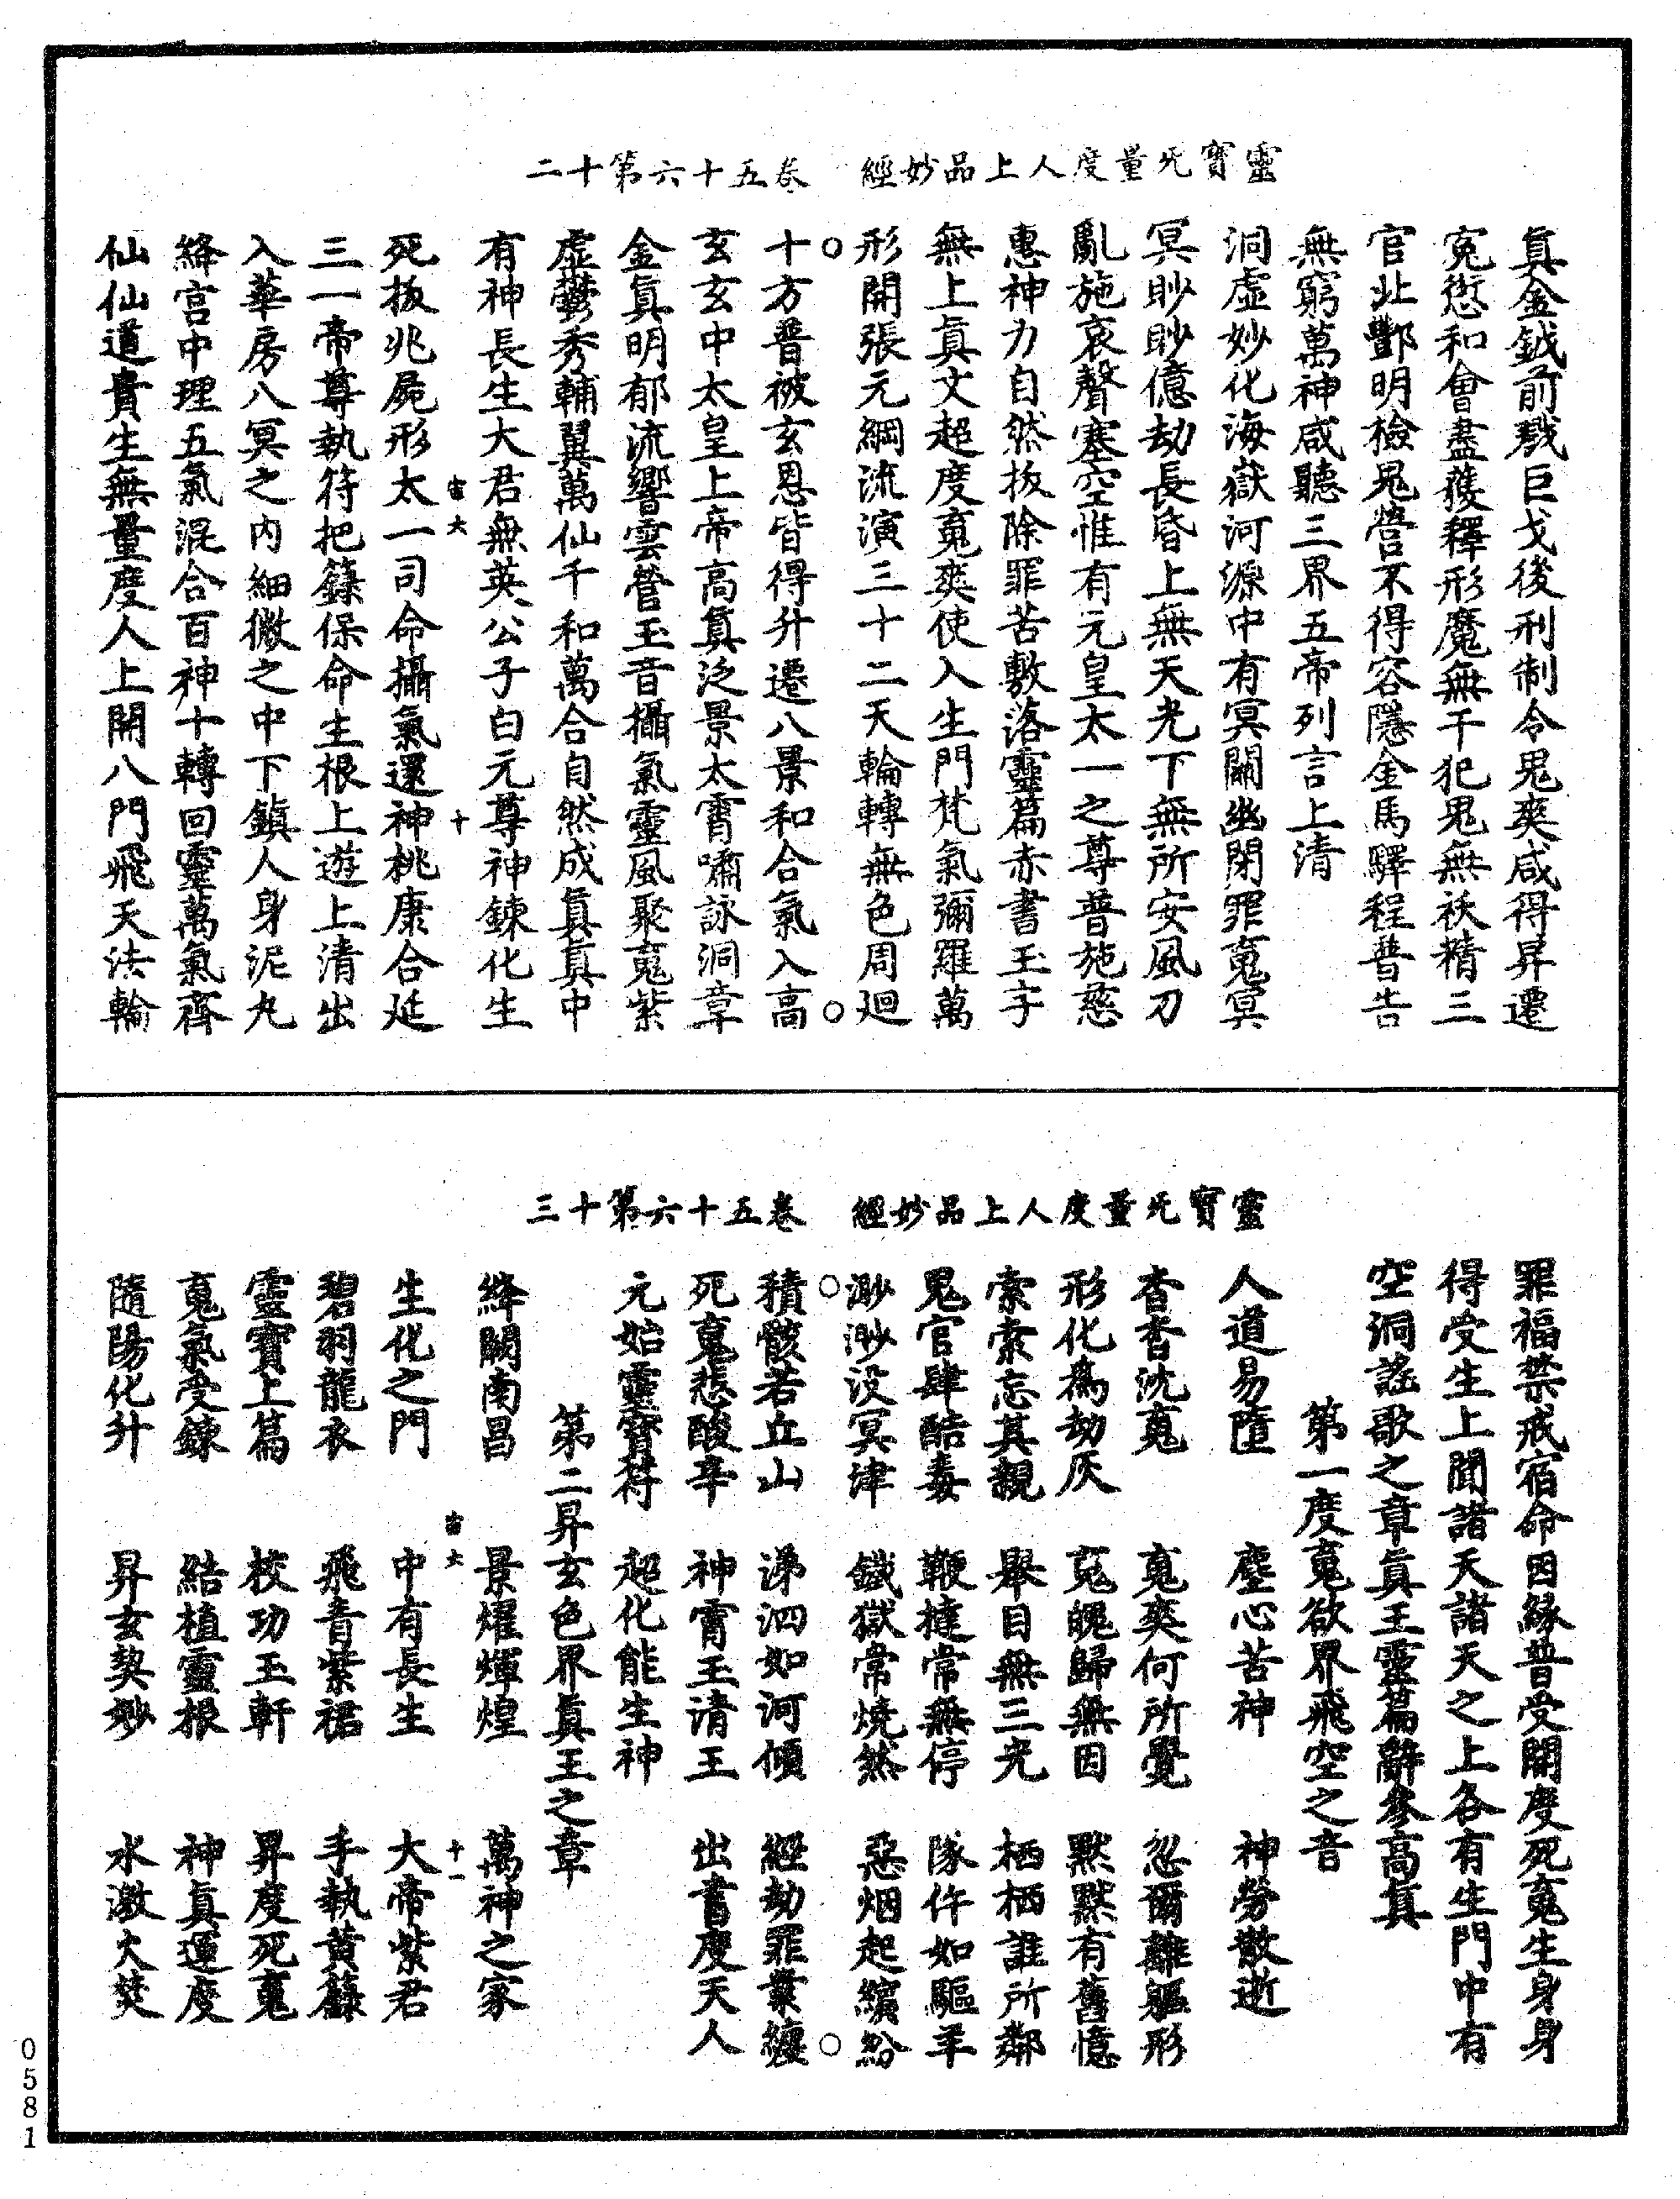 靈寶无量度人上品妙經　卷五十六第十二
真金鉞前戟巨戈後刑制令鬼爽咸得昇遷
冤愆和會盡蒦釋形魔無干犯鬼無袄精三
官北酆明檢鬼營不得容隱金馬驛程普告
無窮萬神咸聽三界五帝列言上清
洞虛妙化海嶽河源中有冥關幽閉罪䰟冥
冥眇眇億劫長昏上無天光下無所安風刀
亂施哀聲塞空惟有元皇太一之尊普施慈
惠神力自然拔除罪苦敷落靈篇赤書玉字
無上真文超度䰟爽使入生門梵氣彌羅萬
形開張元綱流演三十二天輪轉無色周廻
十方普被玄恩皆得升遷八景和合氣入高
玄玄中太皇上帝高真泛景太霄嘯詠洞章
金真明郁流響雲營玉音攝氣靈風聚䰟紫
虛鬱秀輔翼萬仙千和萬合自然成真真中
有神長生大君無英公子白元尊神鍊化生
宙大　十
死拔兆屍形太一司命攝氣還神桃康合延
三一帝尊執符把籙保命生根上遊上清出
入華房八冥之內細微之中下鎮人身泥丸
絳宮中理五氣混合百神十轉回靈萬氣齊
仙仙道貴生無量度人上開八門飛天法輪
靈寶无量度人上品妙經　卷五十六第十三
罪福禁戒宿命因緣普受開度死䰟生身身
得受生上聞諸天諸天之上各有生門中有
空洞謠歌之章真王靈篇辭參高真
第一度䰟欲界飛空之音
人道易墮　塵心苦神　神勞散逝
杳杳沈䰟　䰟爽何所覺　忽爾離軀形
形化為劫灰　䰟魄歸無因　黙黙有舊憶
索索忘其親　舉目無三光　栖栖誰所鄰
鬼官肆酷毒　鞭撻常無停　隊仵如驅羊
渺渺没冥津　鐵獄常燒然　惡烟起繽紛
積骸若丘山　涕泗如河傾　經劫罪業纏
死䰟悲酸辛　神霄玉清王　出書度天人
元始靈寶符　超化能生神
第二昇玄色界真王之章
絳闕南昌　景燿煇煌　萬神之家
宙大　十一
生化之門　中有長生　大帝紫君
碧羽龍衣　飛青紫裙　手執黃籙
靈寶上篇　校功玉軒　昇度死䰟
䰟氣受鍊　結植靈根　神真運度
隨陽化升　昇玄契妙　水激火焚
0581